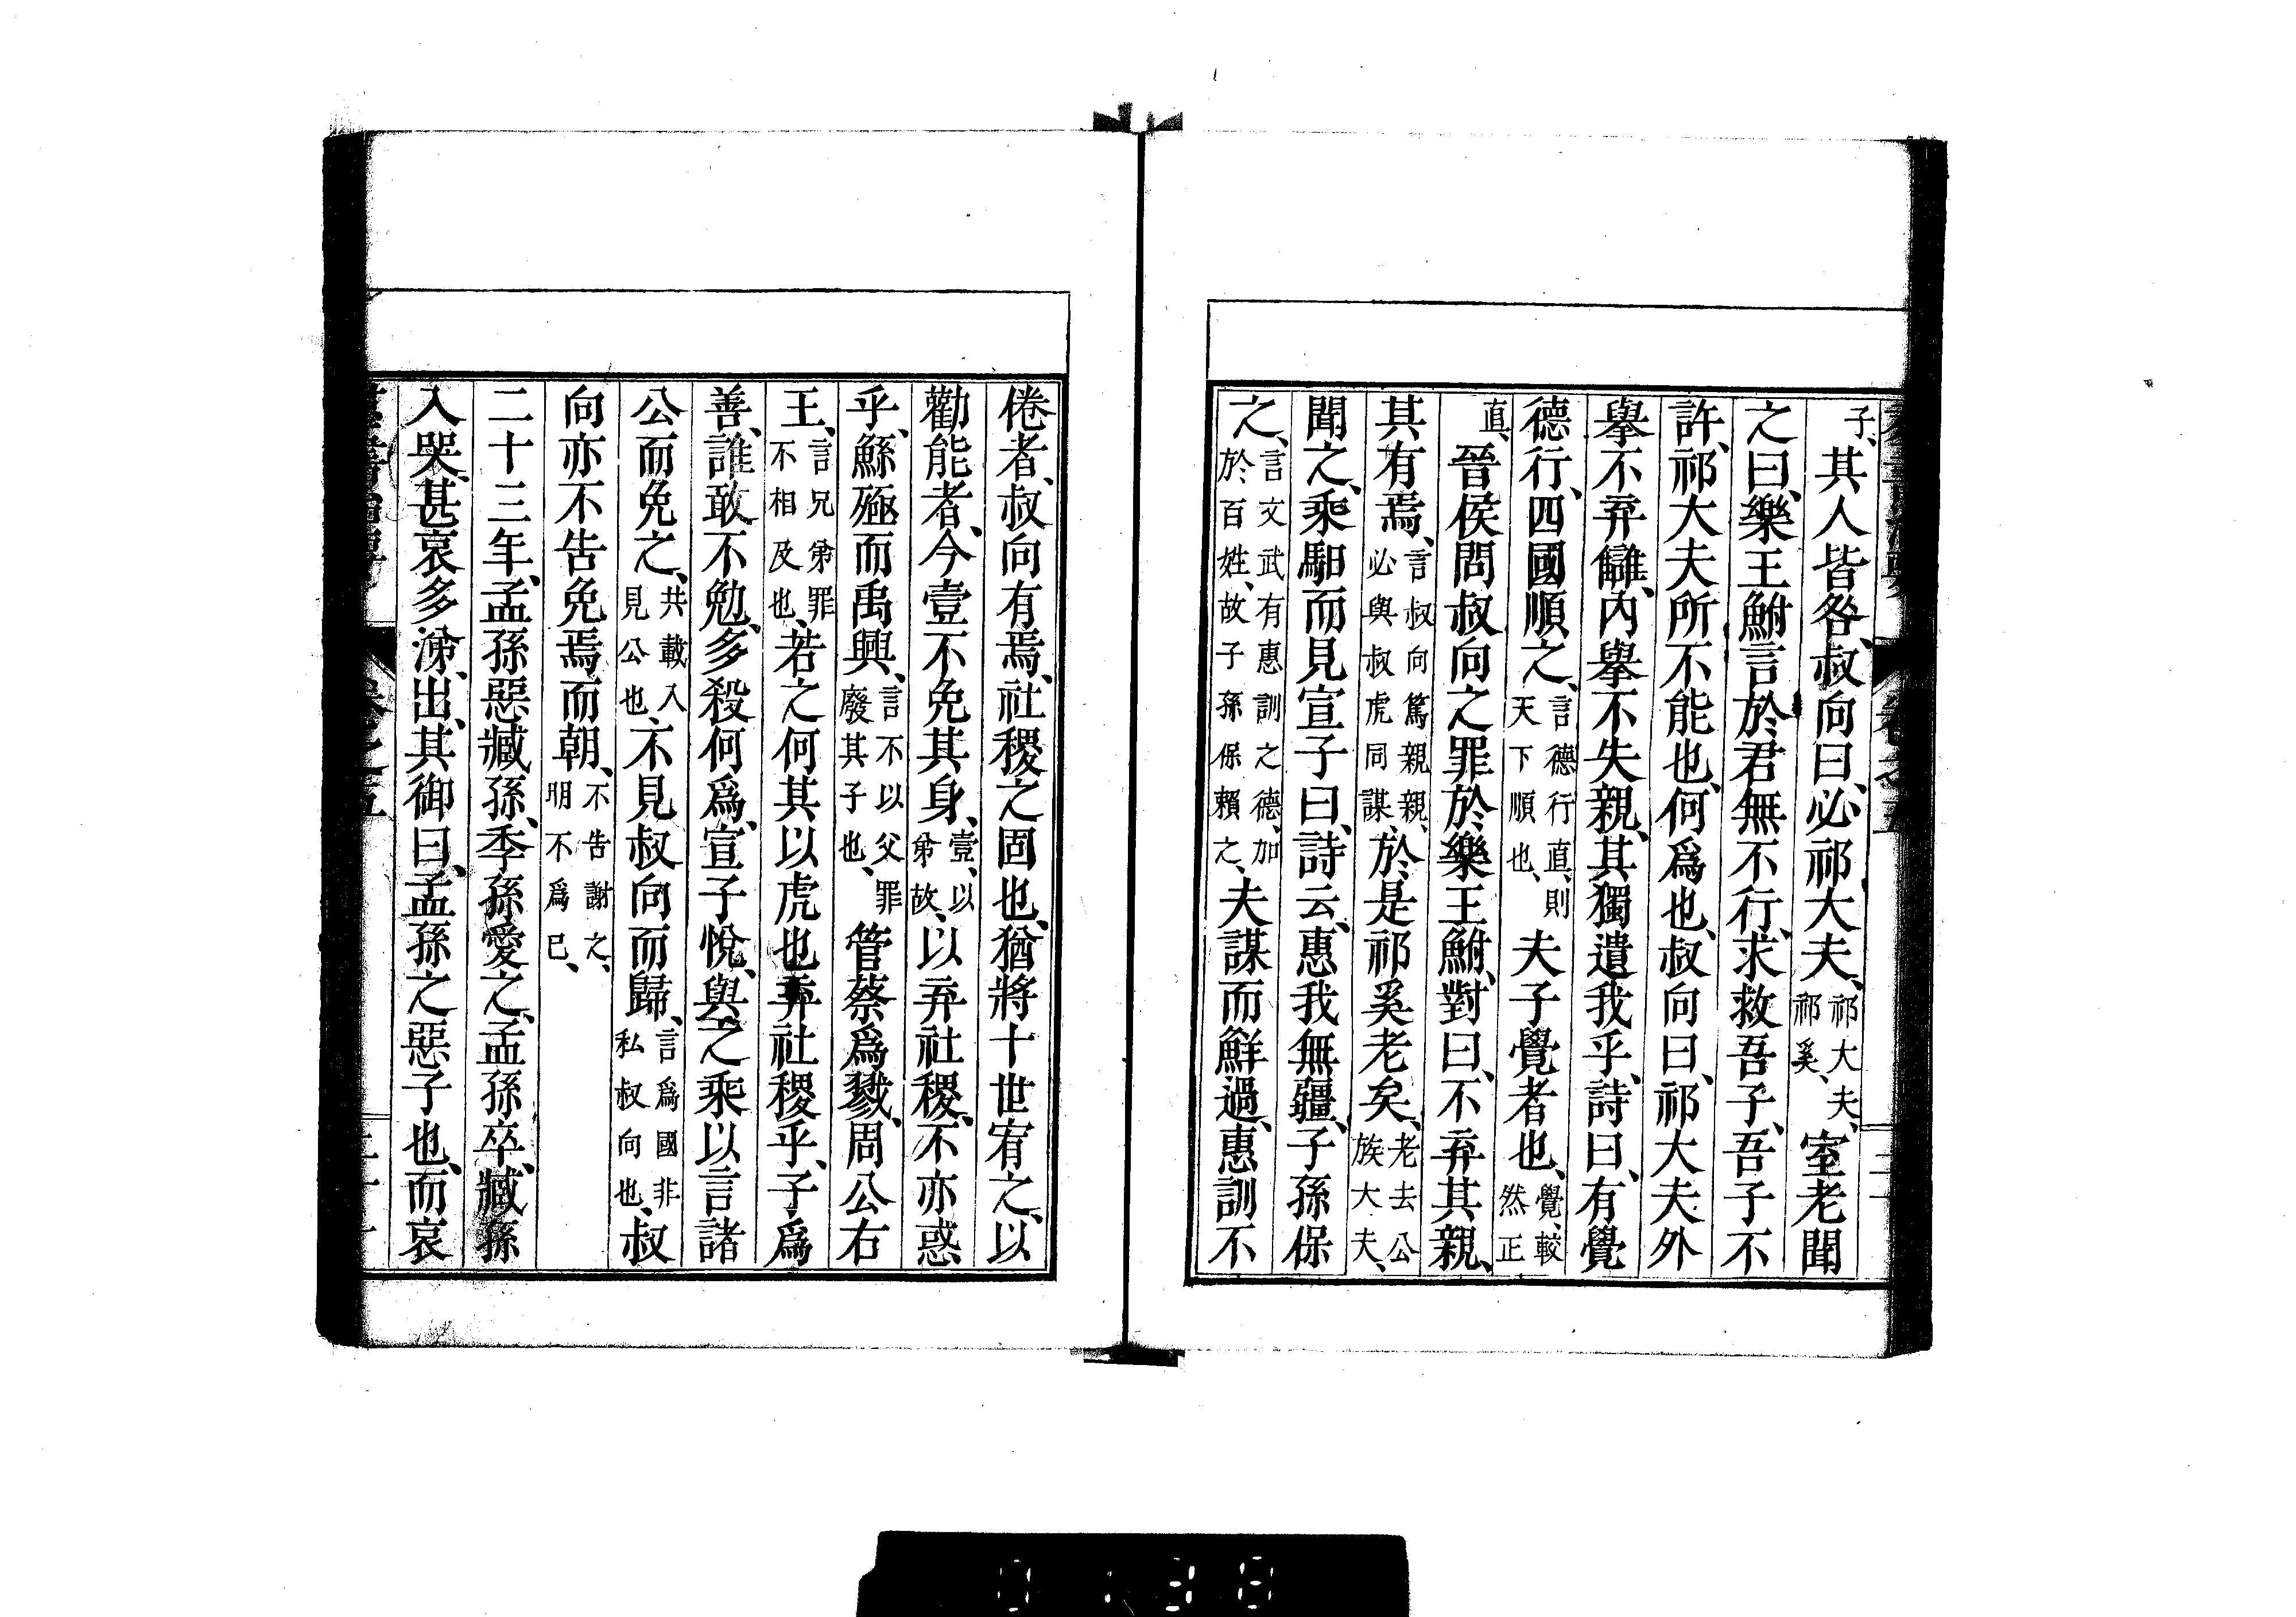 子、其人皆咎、叔向曰、必祁大夫、祁大夫、祁奚、室老聞
之曰、樂王鮒言於君無不行、求救吾子、吾子不
許、祁大夫所不能也、何爲也、叔向曰、祁大夫外
擧不弃讎、內擧不失親、其獨遺我乎、詩曰、有覺
德行、四國順之、言德行直、則天下順也、夫子覺者也、覺、較然正
直、晉侯問叔向之罪於樂王鮒、對曰、不弃其親、
其有焉、言叔向篤親親、必與叔虎同謀、於是祁奚老矣、老去公族大夫、
聞之、乘馹而見宣子曰、詩云、惠我無疆、子孫保
之、言文武有惠訓之德、加於百姓、故子孫保賴之、夫謀而鮮過、惠訓不
倦者、叔向有焉、社稷之固也、猶將十世宥之、以
勸能者、今壹不免其身、壹、以弟故、以弃社稷、不亦惑
乎、鯀殛而禹興、言不以父罪廢其子也、管蔡爲戮、周公右
王、言兄弟罪不相及也、若之何其以虎也弃社稷乎、子爲
善、誰敢不勉、多殺何爲、宣子悅、與之乘以言諸
公而免之、共載入見公也、不見叔向而歸、言爲國非私叔向也、叔
向亦不告免焉、而朝、不告謝之、明不爲己、
二十三年、孟孫惡臧孫、季孫愛之、孟孫卒、臧孫
入哭、甚哀多涕、出、其御曰、孟孫之惡子也、而哀
卷之五